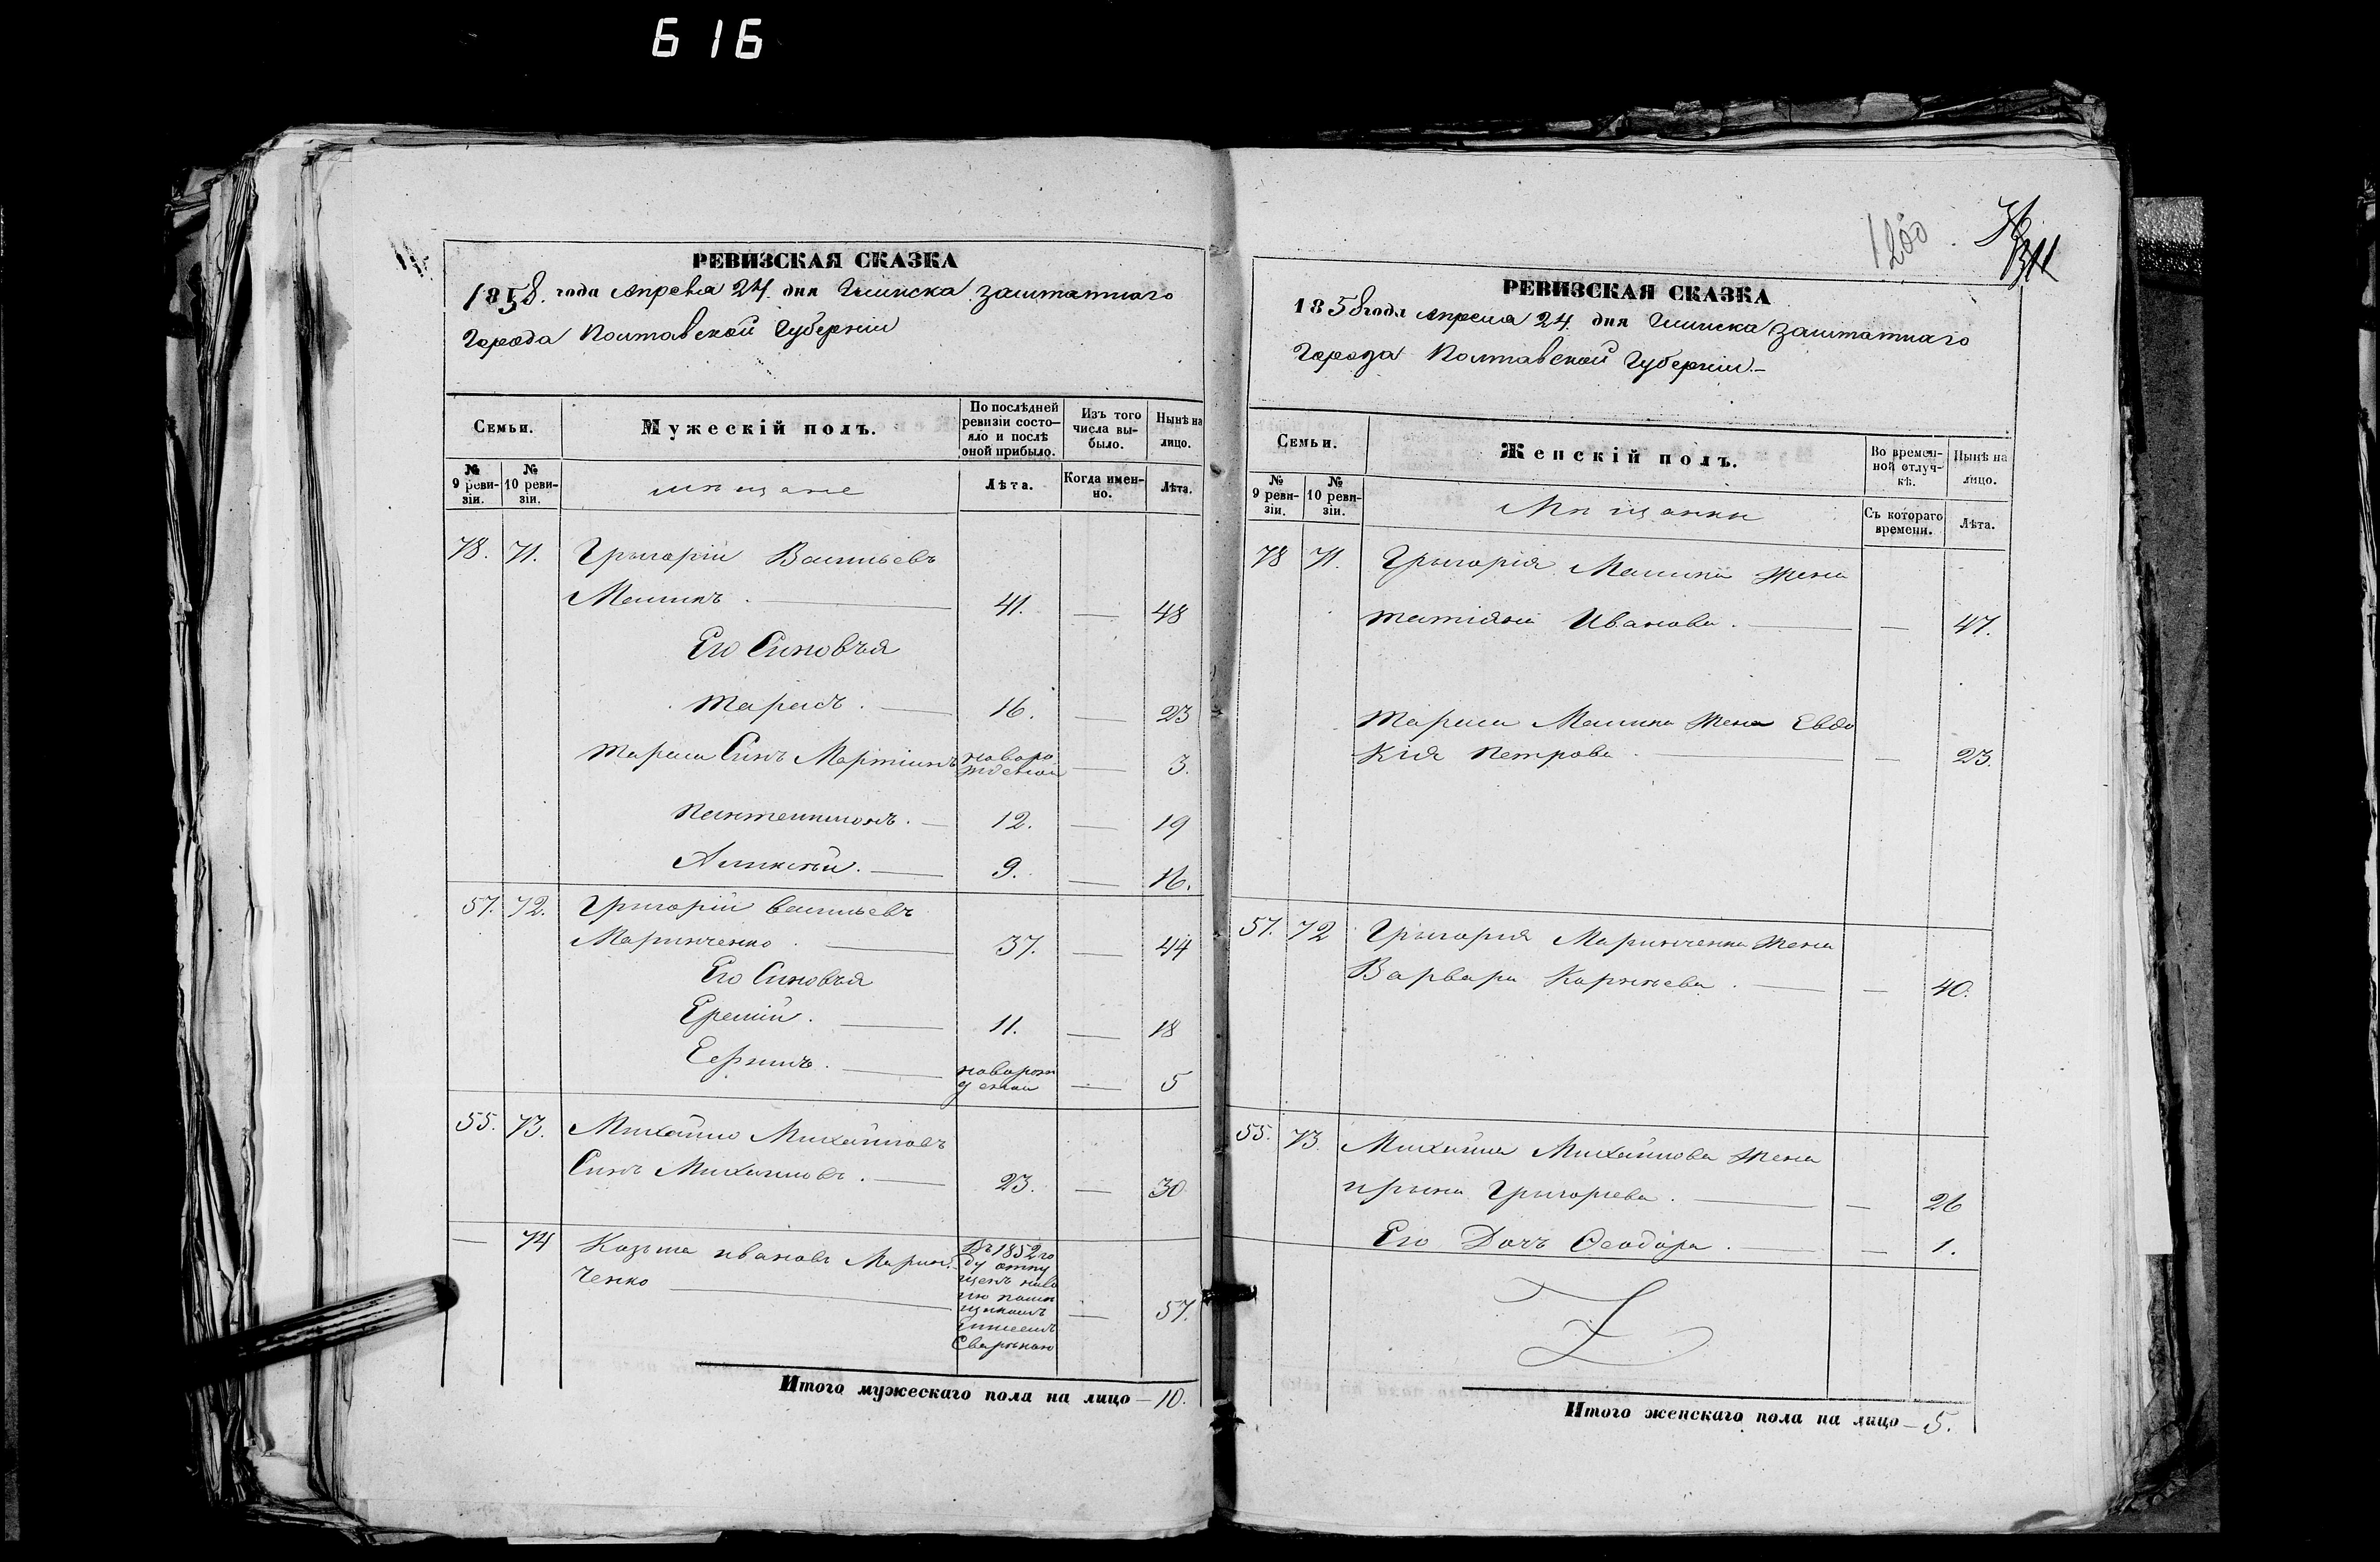 616
РЕВИЗСКАЯ СКАЗКА
1858. года Апреля 24. дня Глинска заштатнаго
Города Полтавской Губерніи
Семьи.
Мужескій полъ.
По послѣдней ревизіи состо-
яло и послѣ оной прибыло.
Изъ того числа вы-
было.
Нынѣ на лицо.
№ 9 реви-
зіи.
№ 10 реви-
зіи.
мѣщане
Лѣта.
Когда имен-
но.
Лѣта.
78. 71. Грыгорій Васильевъ
41. — 48
Его Синовъя
Тарасъ. — 16. — 23
Тараса Синъ Мартинъ новоро
жденой — 3.
Пантелимонъ. — 12. — 19
Алексѣй. — 9. — 16.
57. 72. Григорій Васильевъ
Маринченко — 37. — 44
Его Синовъя
Еремій. — 11. — 18
Ефимъ. — новорож
деной — 5
55. 73. Михайло Михайловъ
Синъ Михайловъ. — 23. — 30
— 74 Козьма Ивановъ Марин-
ченко — 57.
Въ 1852 го
ду отпу
щенъ на во
лю помѣ
щикомъ
Сварикою
Итого мужескаго пола на лицо — 10.
1200
311
РЕВИЗСКАЯ СКАЗКА
1858 года Апреля 24. дня Глинска заштатнаго
Города Полтавской Губерніи. —
Семьи.
Женскій полъ.
Во времен-
ной отлуч-
кѣ.
Нынѣ на лицо.
№ 9 реви-
зіи.
№ 10 реви-
зіи.
Мѣщанки
Съ котораго времени.
Лѣта.
78 71. Грыгорія жена
Татіяна Иванова. — — 47.
Тараса жена Евдо
кія Петрова. — — 23.
57. 72 Грыгорія Маринченка жена
Варвара Корнѣева. — — 40.
55. 73. Михайла Михайлова жена
Ирына Грыгорьева. — — 26
Его Дочъ Ѳеодора. — — 1.
Итого женскаго пола на лицо — 5.